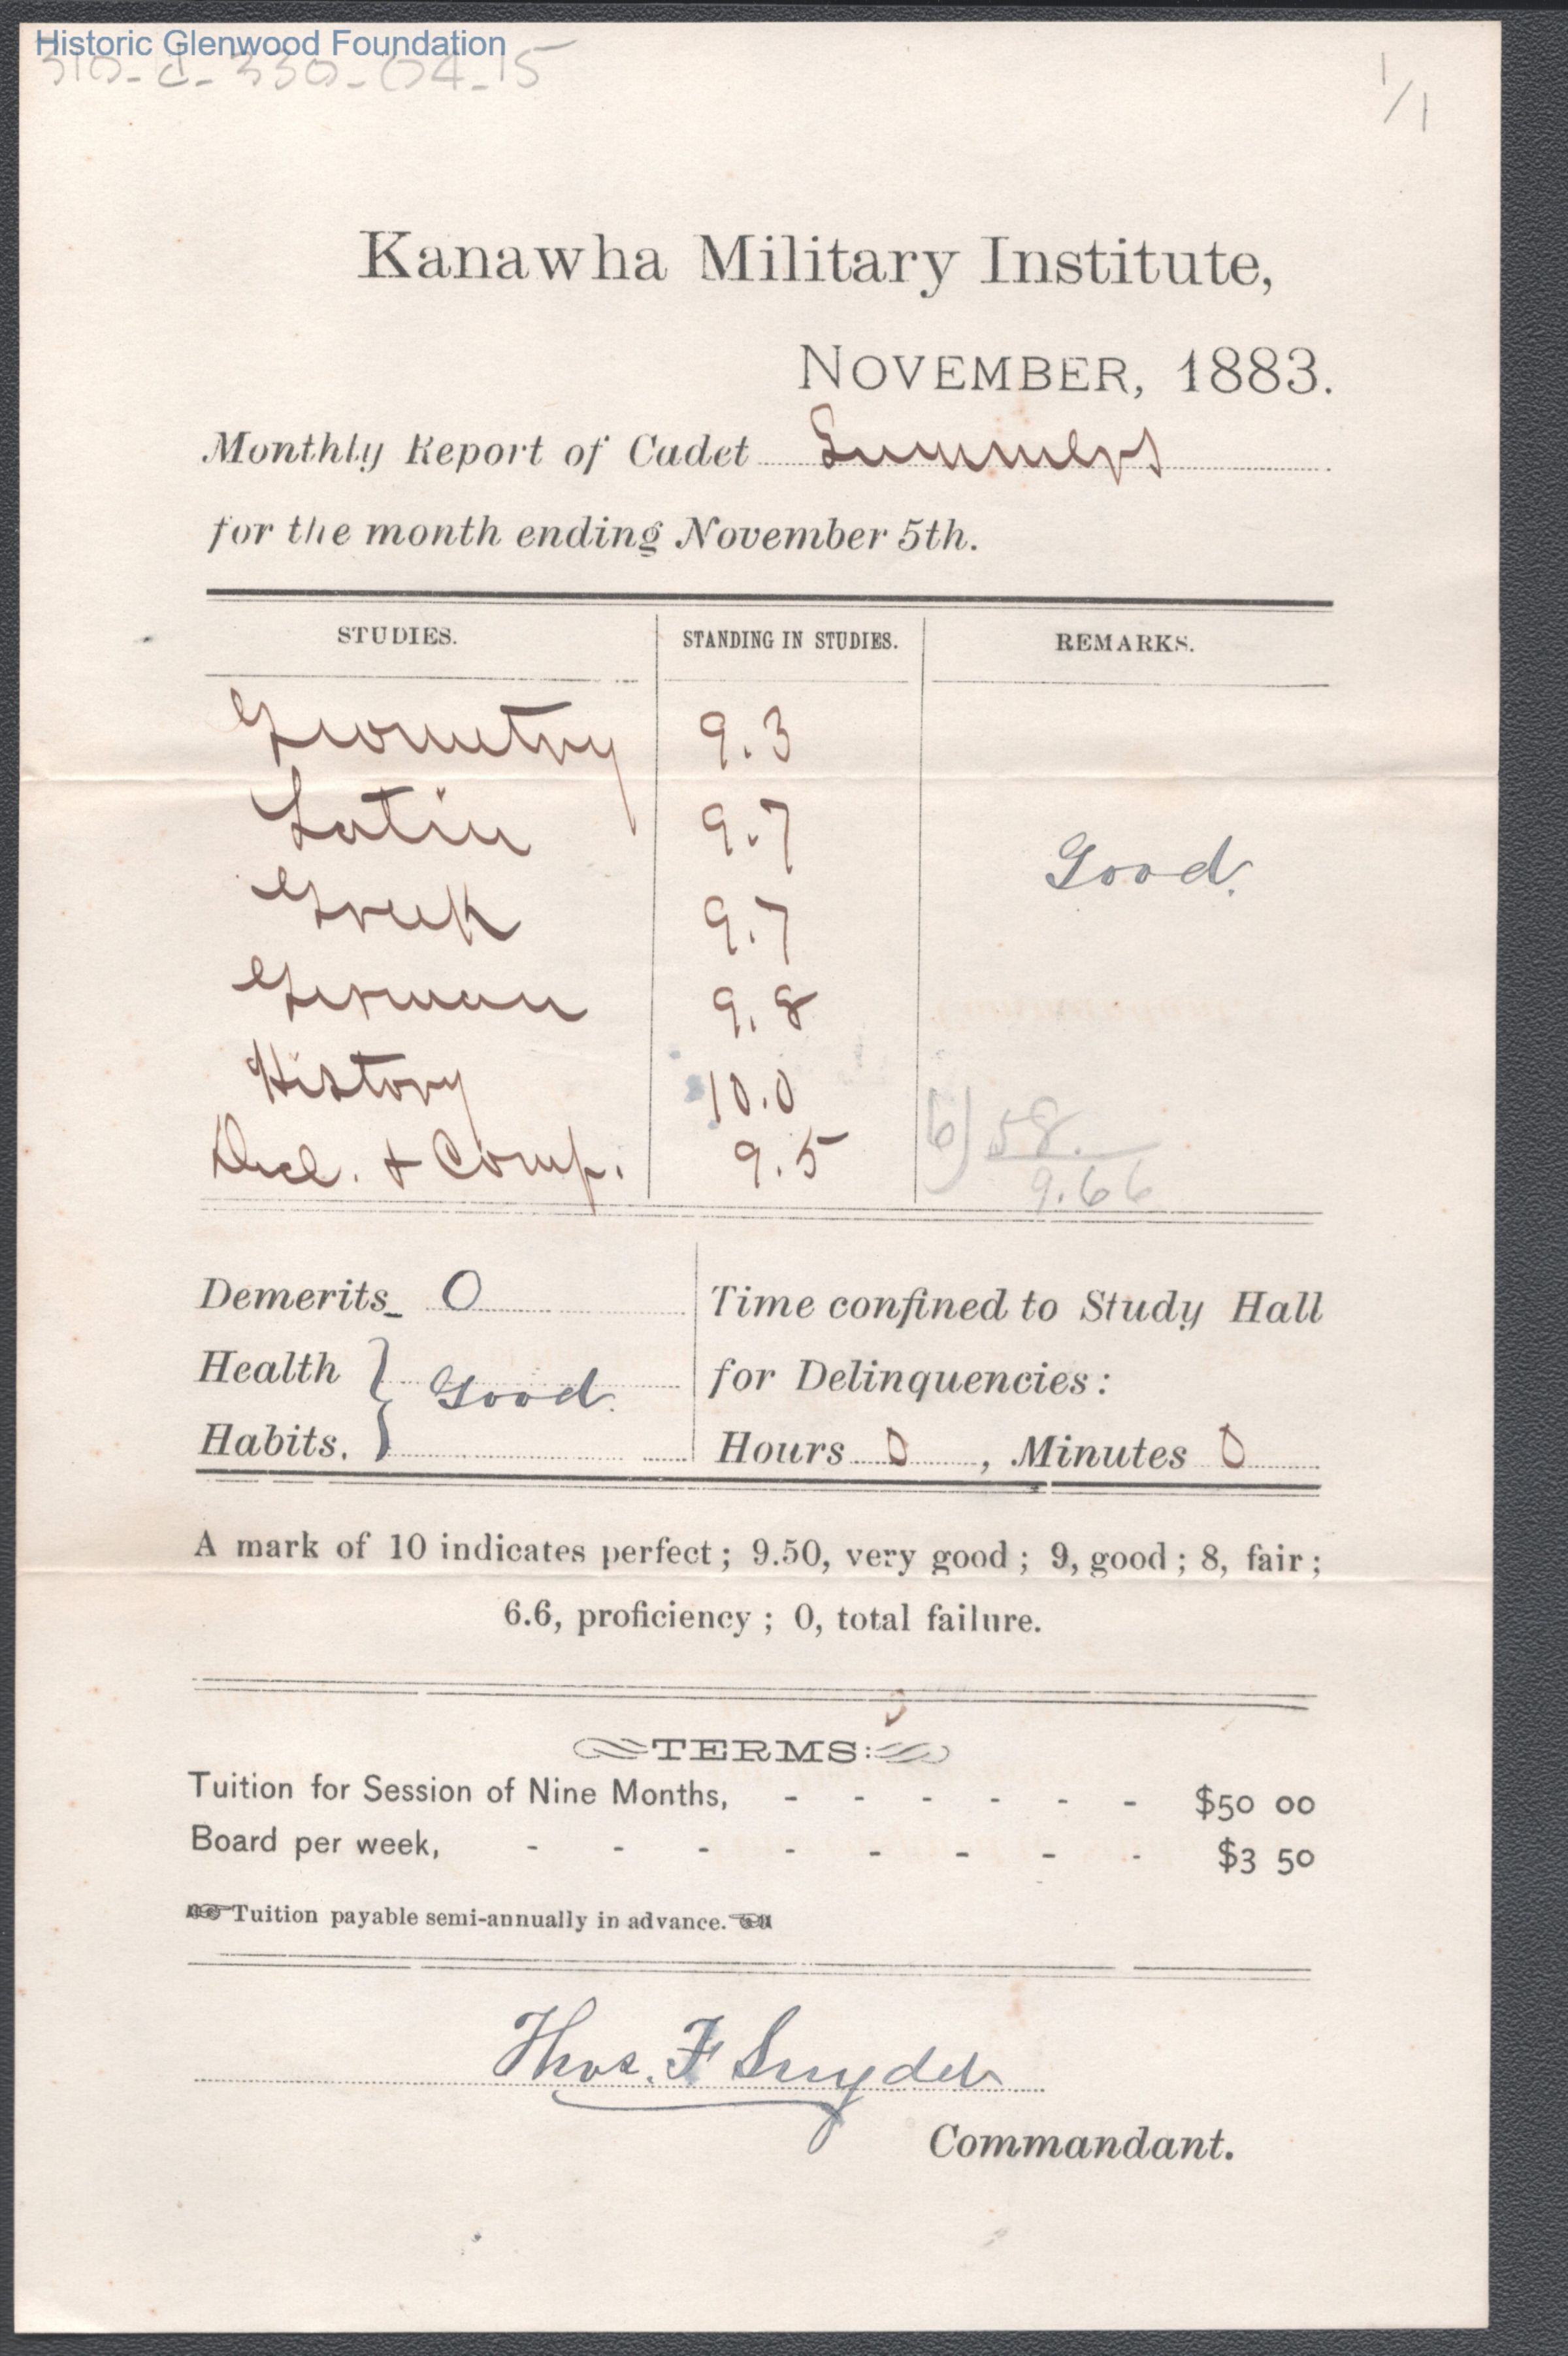 Historic Glenwood Foundation
310-d-330-04-15
1/1
Kanawha Military Institute,
NOVEMBER, 1883.
Monthly Report of Cadet Summers
for the month ending November 5th.
STUDIES. STANDING IN STUDIES. REMARKS.
Geometry 9.3
Latin 9.7
Good.
Greek 9.7
German 9.8
History 10.0
6)58.
Decl. & Comp. 9.5
9.66
Demerits 0
Time confined to Study Hall
Health } Good.
for Delinquencies:
Habits.
Hours 0, Minutes 0
A mark of 10 indicates perfect; 9.50, very good; 9, good; 8, fair;
6.6, proficiency; 0, total failure.
TERMS:
Tuition for Session of Nine Months, - - - - - - $50 00
Board per week, - - - - - - - - $3 50
Tuition payable semi-annually in advance.
Thos. F Snyder
Commandant.